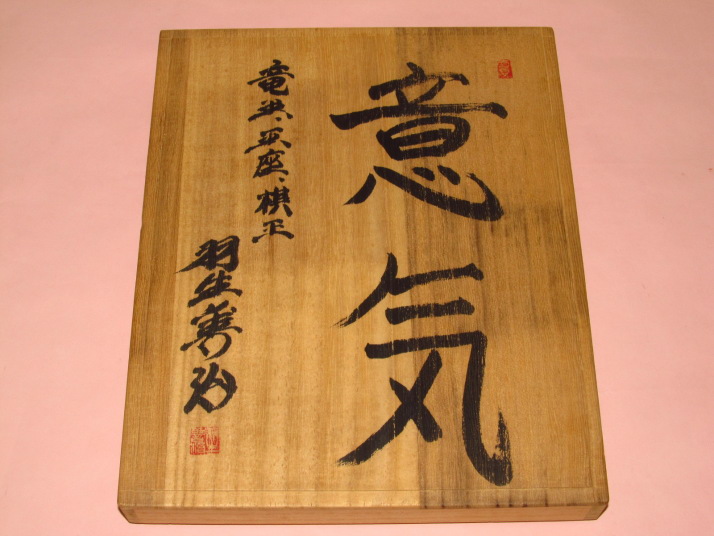 意気
竜王、王座、棋王
羽生善治